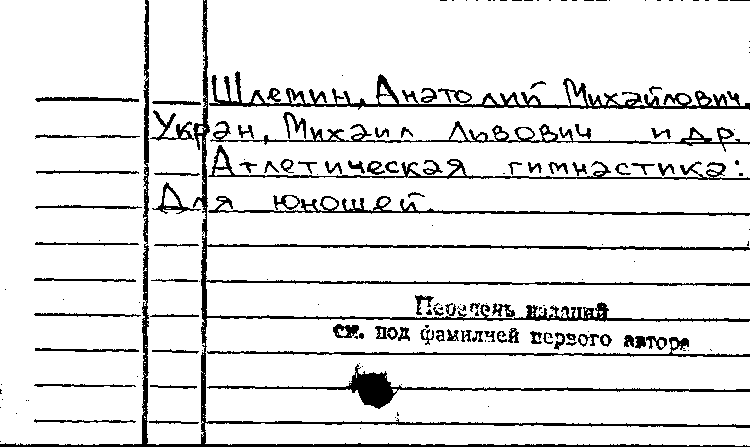 Шлемин, Анатолий Михайлович,
Укран, Михаил Львович и др.
Атлетическая гимнастика:
Для юношей.
Перечень изданий
см. под фамилией первого автора